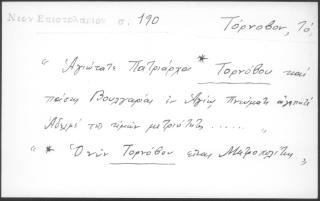 Νεον Επιστολαριον σ. 190
Τόρνοβον, Τό,
" Ἁγιώτατε Πατριάρχα * Τορνόβου καὶ
πάσης Βουλγαρίας ἐν Ἁγίῳ Πνεύματι ἀγαπητὲ
Ἀδελφὲ τῆς ἡμῶν μετριότητος ..... "
" * Ὁ νῦν Τορνόβου εἶναι Μητροπολίτης "